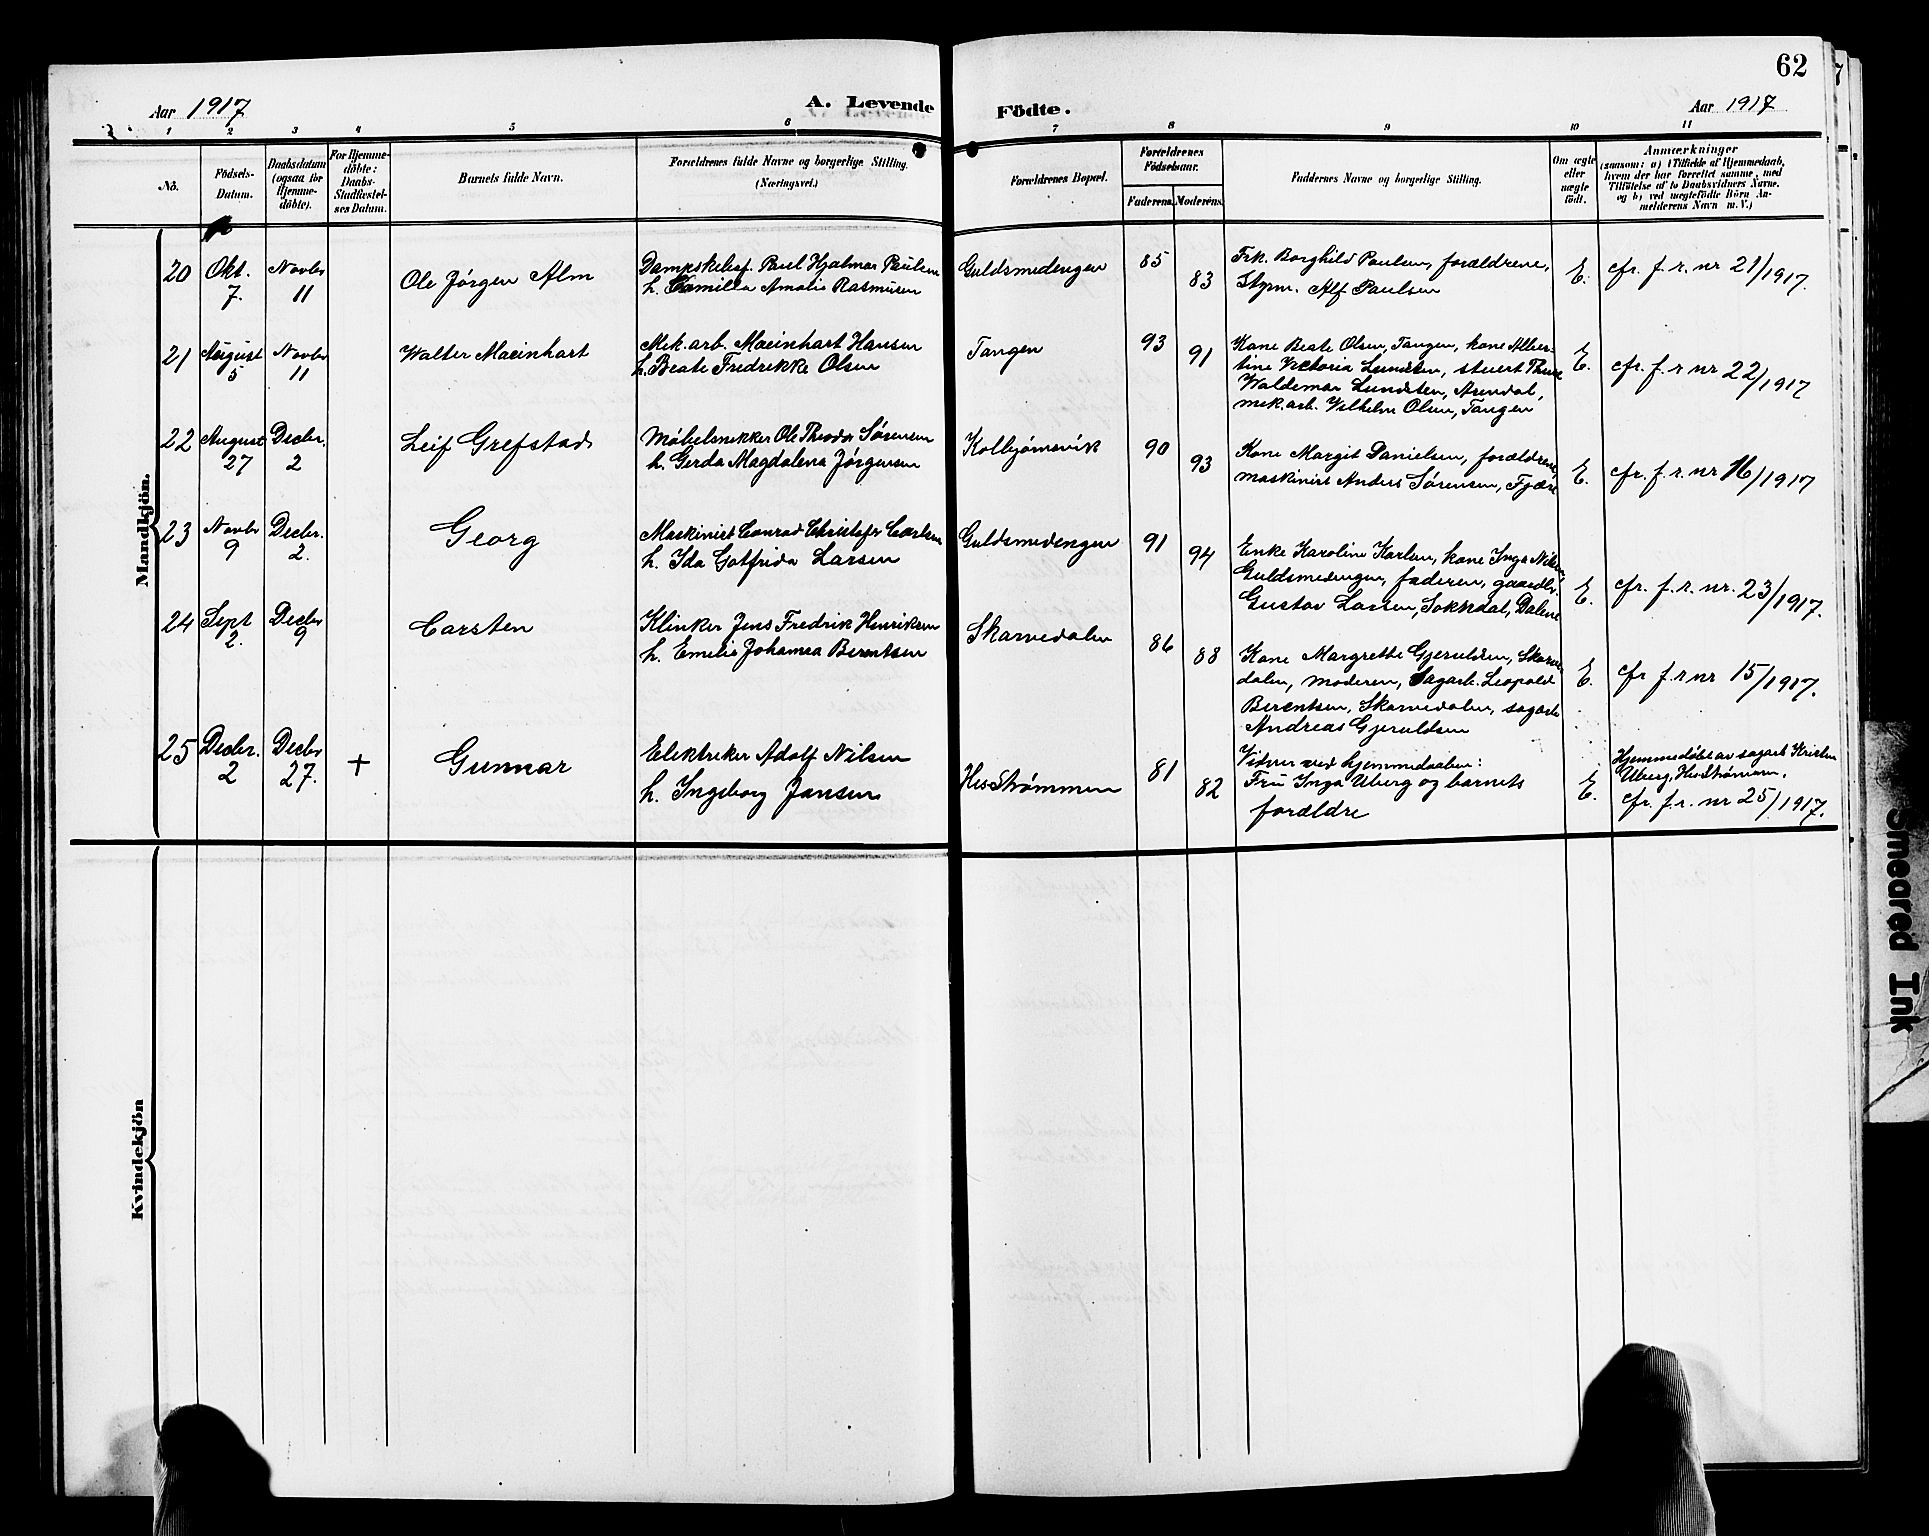 62
Aar 1917
A. Levende Födte.
Aar 1917
1 2 3 4 5 6 7 8 9 10 11
No.
Födsels-Datum.
Daabsdatum (ogsaa for Hjemme-döbte).
For Hjemme-döbte: Daabs-Stadfæstel-ses Datum.
Barnets fulde Navn.
Forældrenes fulde Navne og borgerlige Stilling. (Næringsvei.)
Forældrenes Bopæl.
Forældrenes Födselsaar.
Faderens. Moderens.
Faddernes Navne og borgerlige Stilling.
Om ægte eller uægte födt.
Anmærkninger
(saasom: a) i Tilfælde af Hjemmedaab,
hvem der har forrettet samme, med
Tilföielse af to Daabsvidners Navne.
og b) ved uægtefödte Börn An-
melderens Navn m. V.)
Mandkjön.
20 Okt. 7. Novbr 11 Ole Jørgen Alm
Dampskibsf. Paul Hjalmar Paulsen
h. Camilla Amalie Rasmusen
Guldsmedengen 85 83
Frk. Borghild Paulsen, forældrene,
Styrm. Alf Paulsen
E. cfr. f. r. nr 21/1917.
21 August 5 Novbr 11 Walter Maeinhart
Mek. arb. Maeinhart Hansen
h. Beate Fredrikke Olsen
Tangen 93 91
Kone Beate Olsen, Tangen, kone Alber-
tine Victoria Lundsten, stuert
Waldemar Lundsten, Arendal,
mek. arb. Vilhelm Olsen, Tangen
E. cfr. f. r nr 22/1917
22 August 27 Decbr. 2 Leif Grefstad
Møbelsnekker Ole Theodor Sørensen
h. Gerda Magdalena Jørgensen
Kolbjørnsvik 90 93
Kone Margit Danielsen, forældrene,
maskinist Anders Sørensen, Fjære
E. cfr. f. r. nr 16/1917
23 Novbr 9 Decbr. 2. Georg
Maskinist Conrad Christofer Carlsen
h. Ida Gotfrida Larsen
Guldsmedengen 91 94
Enke Karoline Karlsen, kone Inga Nilsen,
Guldsmedengen, faderen, gaardbr.
Gustav Larsen, Sokndal, Dalene
E. cfr. f. r. nr. 23/1917.
24 Sept 2. Decbr 9 Carsten
Klinker Jens Fredrik Henriksen
h. Emelie Johanna Berentsen
Skarvedalen 86 88
Kone Margrethe Gjeruldsen, Skarve-
dalen, moderen, sagarb. Leopold
Berentsen, Skarvedalen, sagarb
Andreas Gjeruldsen
E. cfr f. r nr 15/1917.
25 Decbr. 2 Decbr 27. + Gunnar
Elektriker Adolf Nilsen
h. Ingeborg Jansen
His Strømmen 81 82
Vidner ved hjemmedaaben:
Fru Inga Uberg og barnets
forældre
E.
Hjemmedøbt av sagarb Kristen
Uberg, His Strømmen.
cfr. f. r. nr 25/1917.
Kvindekjön
Smeared Ink